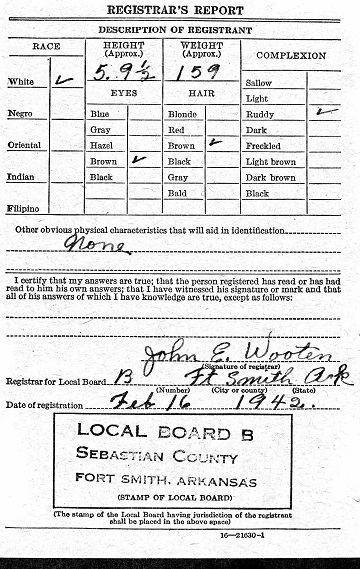 REGISTRAR'S REPORT
DESCRIPTION OF REGISTRANT
RACE HEIGHT (Approx.) WEIGHT (Approx.) COMPLEXION
White ✓ 5. 9 1/2 159
EYES HAIR
Sallow
Light
Negro Blue Blonde Ruddy ✓
Gray Red Dark
Oriental Hazel Brown ✓ Freckled
Brown ✓ Black Light brown
Indian Black Gray Dark brown
Bald Black
Filipino
Other obvious physical characteristics that will aid in identification
None
I certify that my answers are true; that the person registered has read or has had
read to him his own answers; that I have witnessed his signature or mark and that
all of his answers of which I have knowledge are true, except as follows:
John E. Wooten
(Signature of registrar)
Registrar for Local Board B Ft Smith Ark
(Number) (City or county) (State)
Date of registration Feb 16 1942.
LOCAL BOARD B
SEBASTIAN COUNTY
FORT SMITH, ARKANSAS
(STAMP OF LOCAL BOARD)
(The stamp of the Local Board having jurisdiction of the registrant
shall be placed in the above space)
16—21630-1